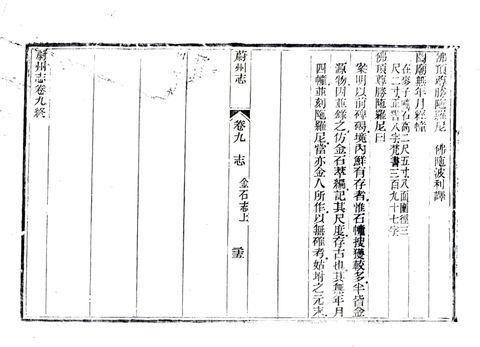 佛頂尊勝陁羅尼　佛陁波利譯
閻廟無年月經幢
在麥子疃石高二尺五寸八面圍徑三
尺二寸正書八字梵書三百九十七字
佛頂尊勝陁羅尼曰
案明以前碑碣境內鮮有存者惟石幢搜獲較多半皆金
源物因並錄之仿金石萃編記其尺度存古也其無年月
四幢並刻陁羅尼當亦金人所作以無確考姑坿之元末
蔚州志　卷九　志　金石志上
蔚州志卷九終